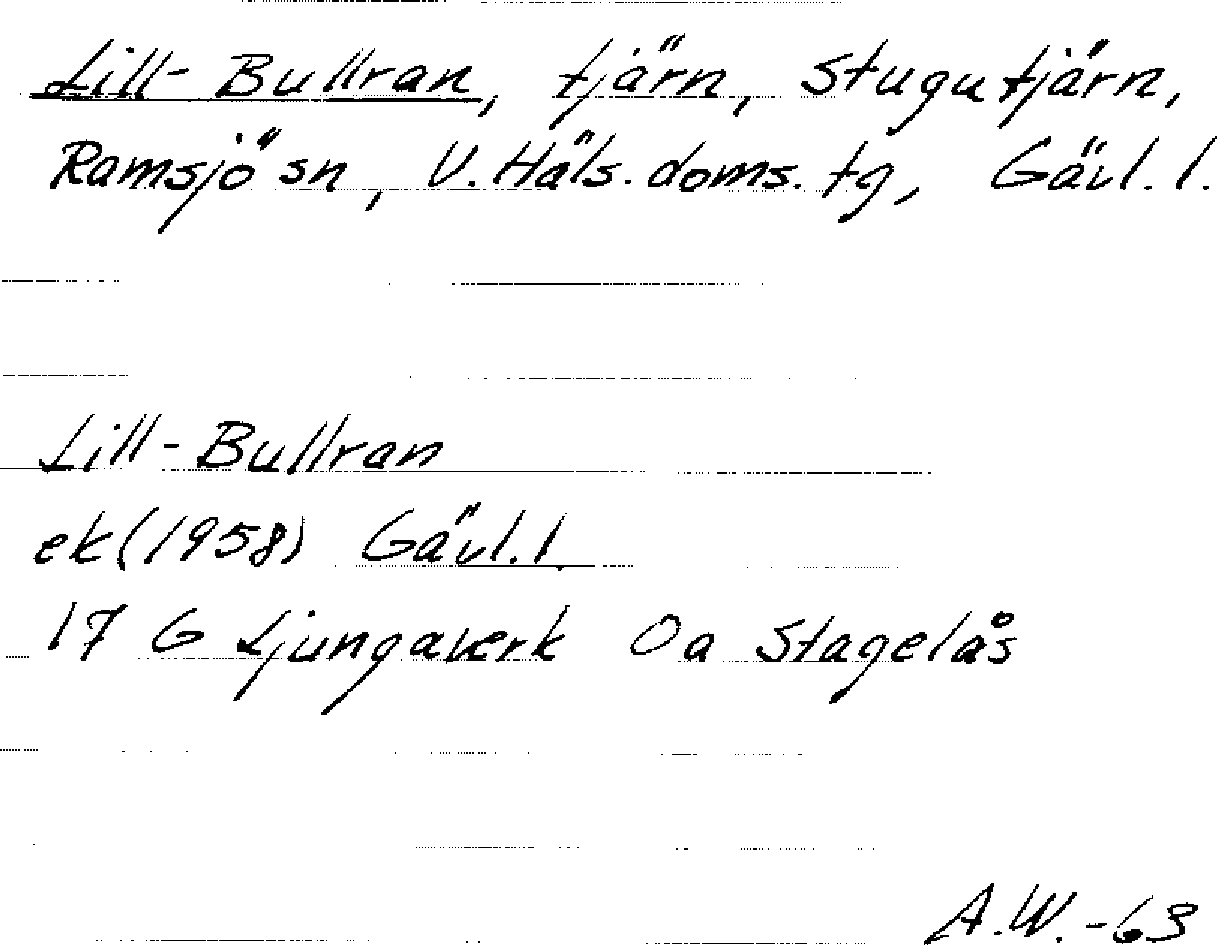 Lill-Bullran, tjärn, Stugutjärn,
Ramsjö sn, V. Häls. doms. tg, Gävl. l.
Lill-Bullran
ek (1958) Gävl. l.
17 G Ljungaverk Oa Stagelås
A.W.-63